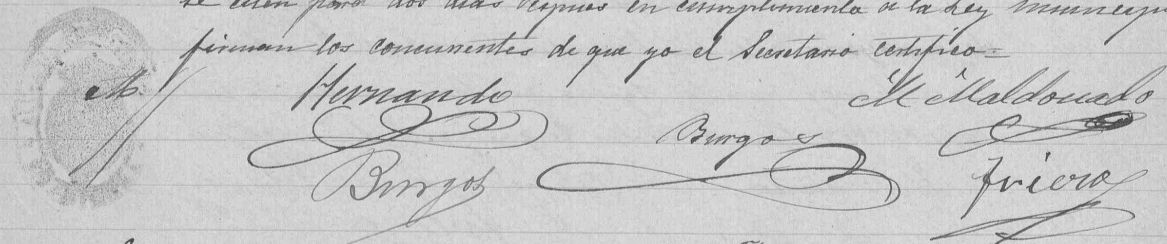 se citen para dos dias despues en cumplimiento a la ley
firman los concurrentes de que yo el Secretario certifico=
M. Hernando M Maldonado
Burgos
Burgos